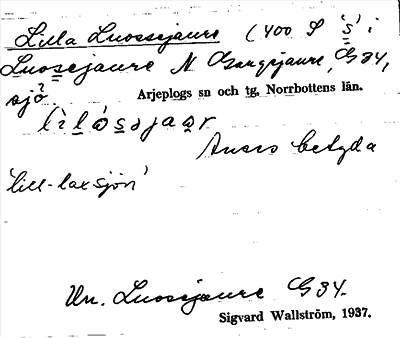 Lilla Luossejaure (400 S 's' i
Luossejaure N Gargejaure, G 34,
sjö
Arjeplogs sn och tg. Norrbottens län.
Anses betyda
'lill-laxsjön'
Un. Luossejaure G 34.
Sigvard Wallström, 1937.